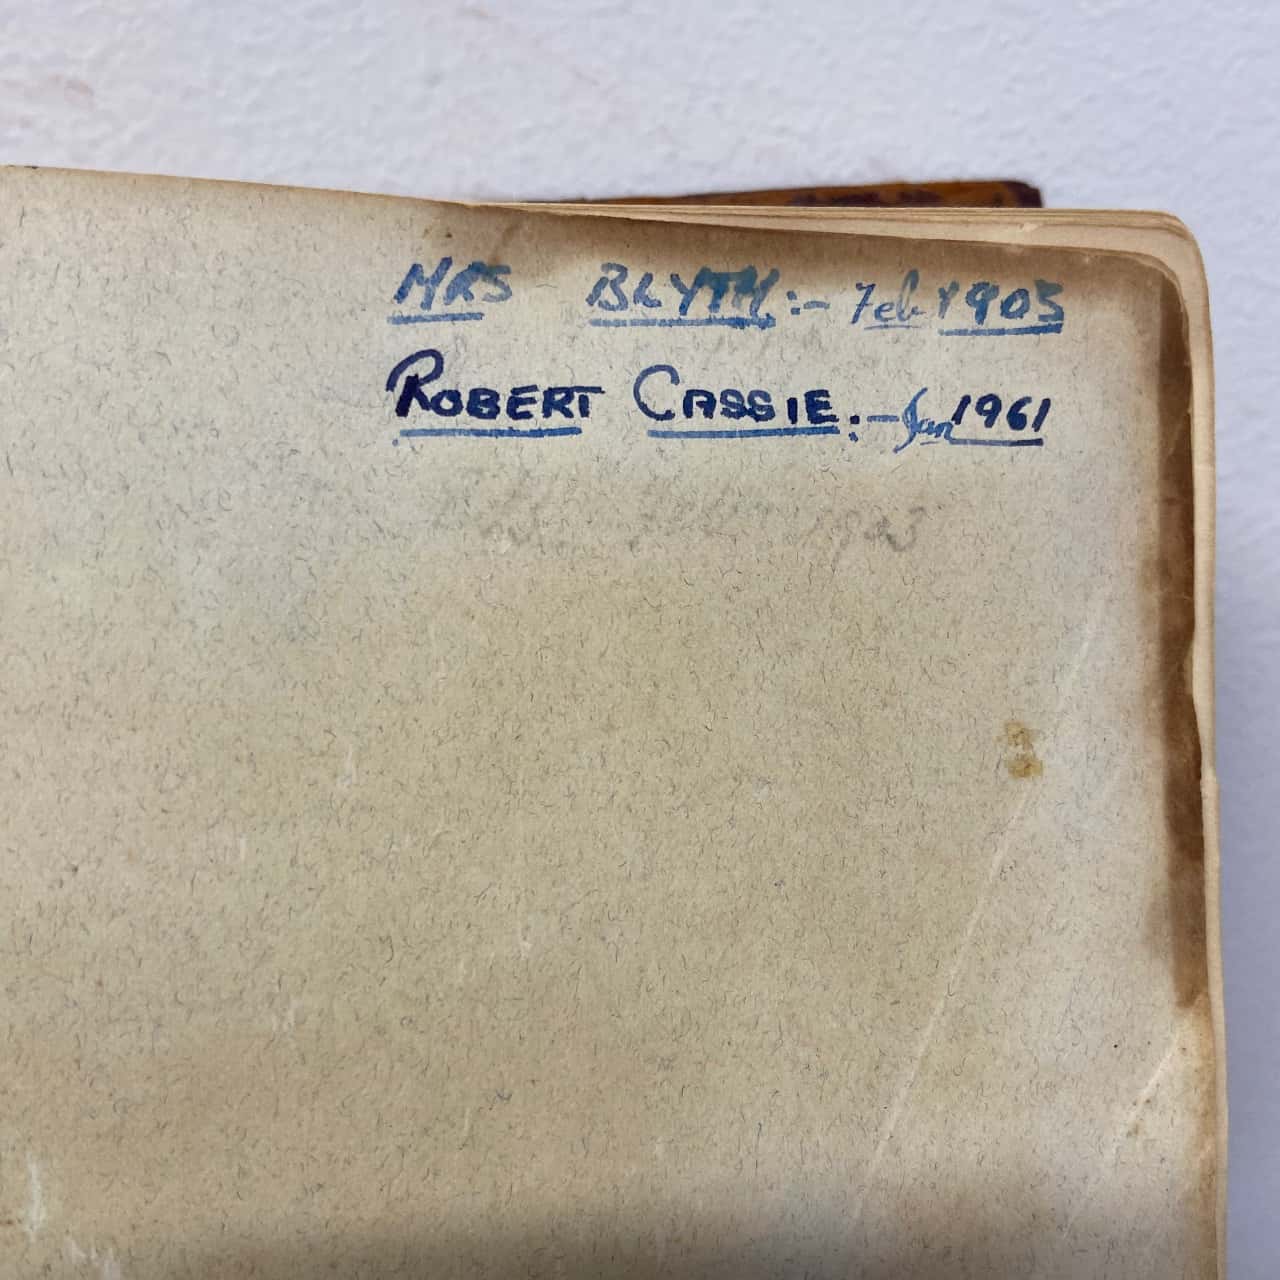 MRS BLYTH:- Feb 1903
ROBERT CASSIE:- Jan 1961
1903